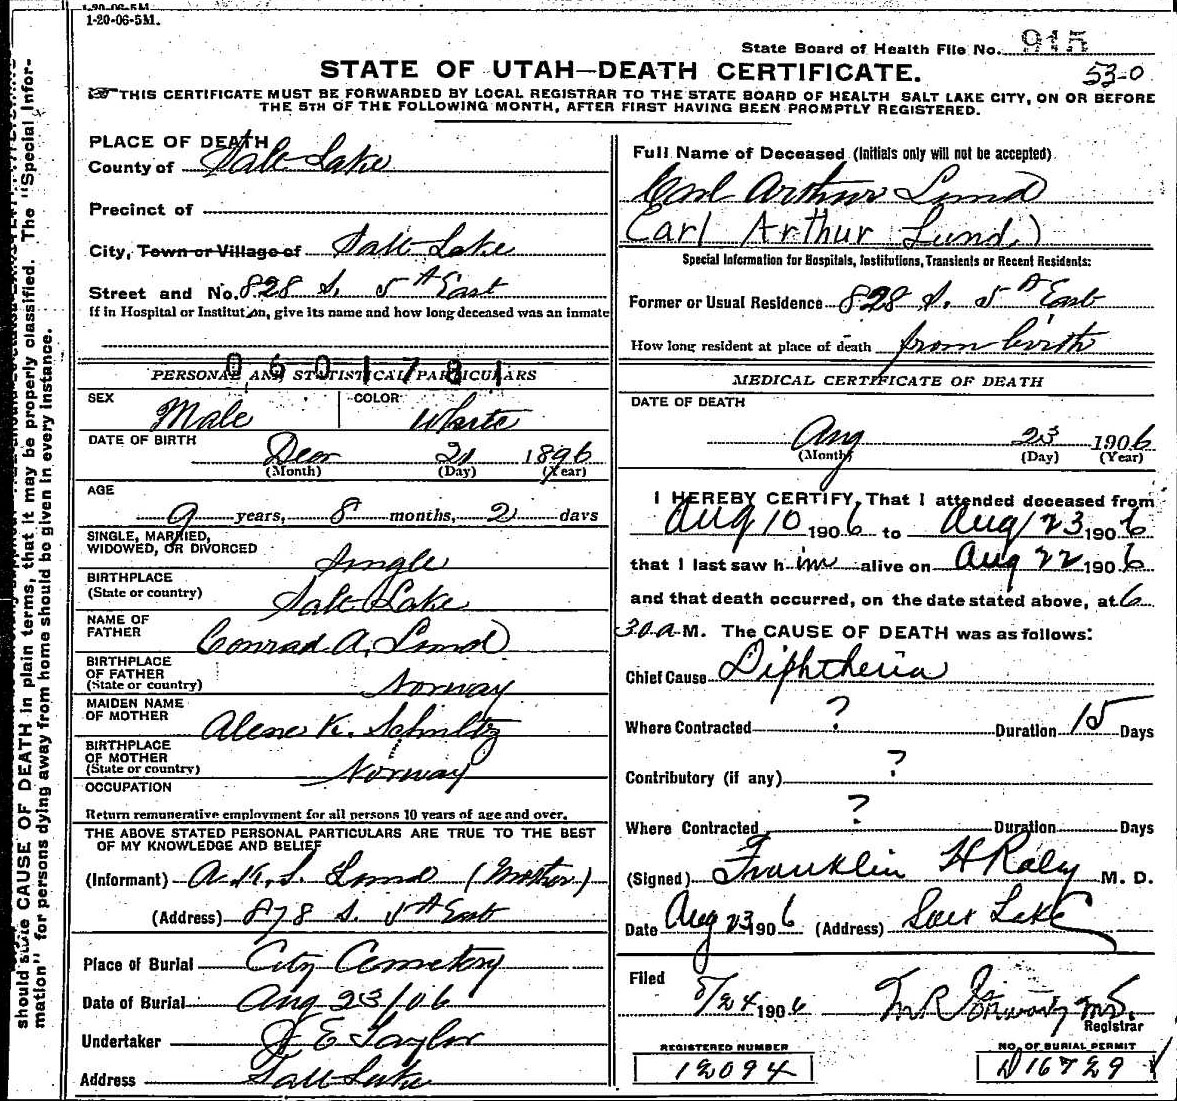 1-20-06-5M.
1-20-06-5M.
State Board of Health File No. 915
STATE OF UTAH—DEATH CERTIFICATE.
53-0
☞THIS CERTIFICATE MUST BE FORWARDED BY LOCAL REGISTRAR TO THE STATE BOARD OF HEALTH SALT LAKE CITY, ON OR BEFORE
THE 5TH OF THE FOLLOWING MONTH, AFTER FIRST HAVING BEEN PROMPTLY REGISTERED.
PLACE OF DEATH
County of Salt Lake
Precinct of
City, Town or Village of Salt Lake
Street and No. 828 S. 5th East
If in Hospital or Institution, give its name and how long deceased was an inmate
0601781
PERSONAL AND STATISTICAL PARTICULARS
SEX Male COLOR White
DATE OF BIRTH Decr 21 1896
(Month) (Day) (Year)
AGE
9 years, 8 months, 2 days
SINGLE, MARRIED,
WIDOWED, OR DIVORCED Single
BIRTHPLACE
(State or country) Salt Lake
NAME OF
FATHER Conrad A. Lund
BIRTHPLACE
OF FATHER
(State or country) Norway
MAIDEN NAME
OF MOTHER Alene K. Schultz
BIRTHPLACE
OF MOTHER
(State or country) Norway
OCCUPATION
Return remunerative employment for all persons 10 years of age and over.
THE ABOVE STATED PERSONAL PARTICULARS ARE TRUE TO THE BEST
OF MY KNOWLEDGE AND BELIEF
(Informant) A. K. S. Lund (Mother)
(Address) 878 S. 5th East
Place of Burial City Cemetery
Date of Burial Aug 23/06
Undertaker E Taylor
Address Salt Lake
Full Name of Deceased (Initials only will not be accepted)
Carl Arthur Lund
(Carl Arthur Lund.)
Special Information for Hospitals, Institutions, Transients or Recent Residents:
Former or Usual Residence 828 S. 5th East
How long resident at place of death from birth
MEDICAL CERTIFICATE OF DEATH
DATE OF DEATH
Aug 23 1906
(Month) (Day) (Year)
I HEREBY CERTIFY, That I attended deceased from
Aug 10 1906 to Aug 23 1906
that I last saw him alive on Aug 22 1906
and that death occurred, on the date stated above, at 6
30 a M. The CAUSE OF DEATH was as follows:
Chief Cause Diphtheria
Where Contracted ? Duration 15 Days
Contributory (if any) ?
Where Contracted ? Duration Days
(Signed) Franklin H Raley M. D.
Date Aug 23 1906 (Address) Salt Lake
Filed 8/24 1906
Registrar
REGISTERED NUMBER
12094
NO. OF BURIAL PERMIT
D16729
should state CAUSE OF DEATH in plain terms, that it may be properly classified. The "Special Infor-
mation" for persons dying away from home should be given in every instance.